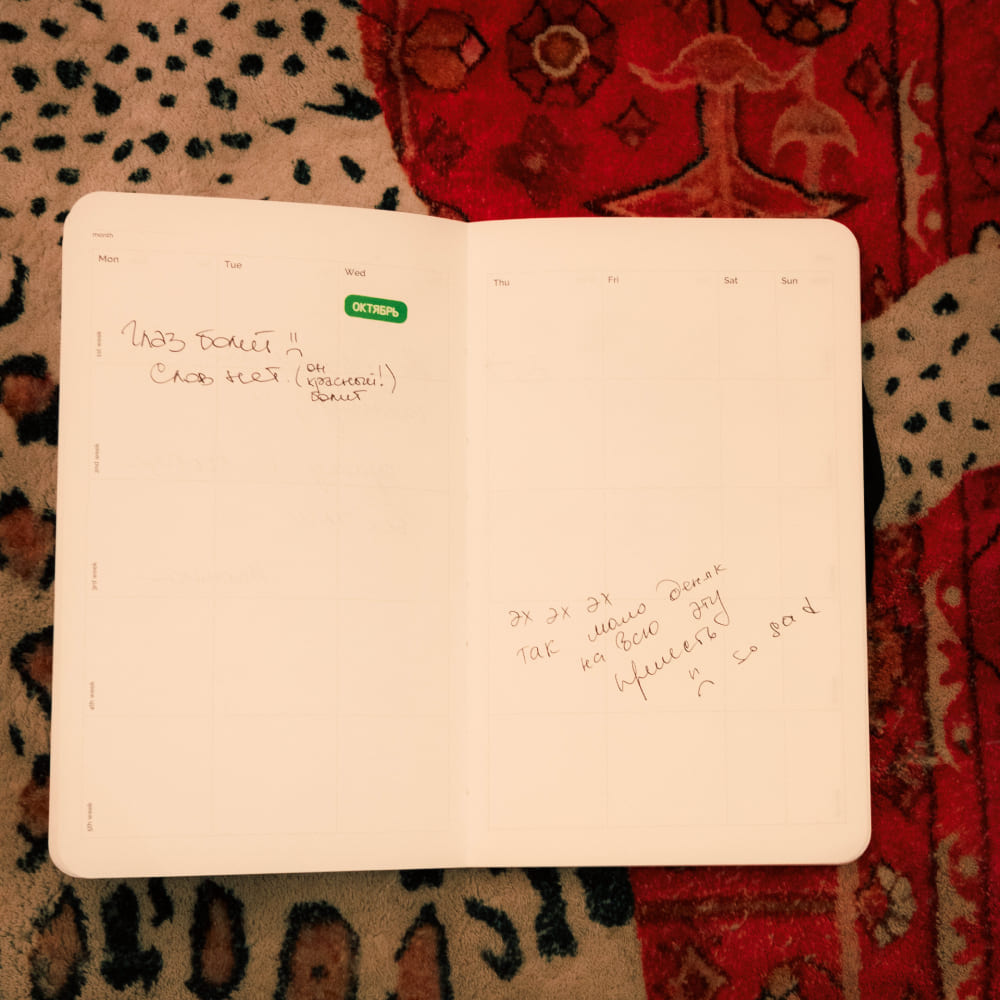 month
Mon
Tue
Wed
ОКТЯБРЬ
1st week
Глаз болит
Слов нет. (он
красный!)
болит
2nd week
3rd week
4th week
5th week
Thu
Fri
Sat
Sun
эх эх эх
так мало деняк
на всю эту
прелесть
so sad